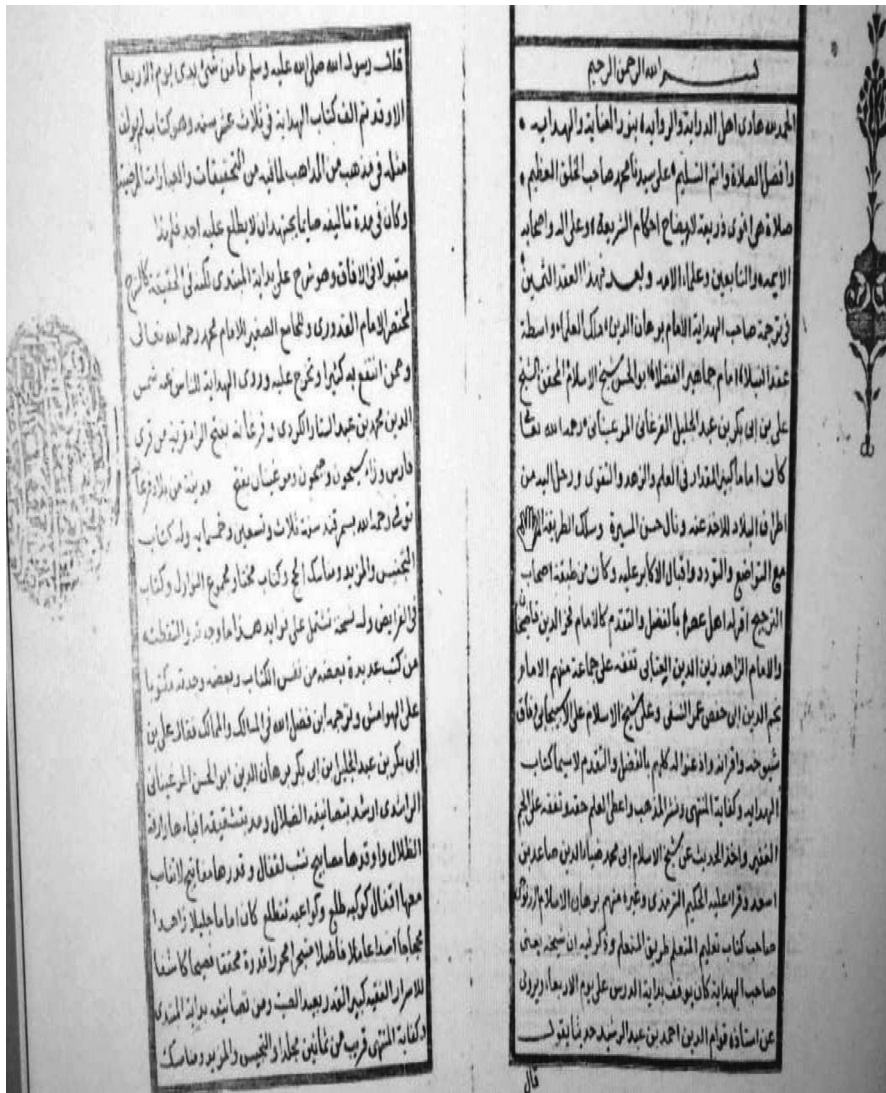 بسم الله الرحمن الرحيم
الحمد لله هادى اهل الدراية والرواية بنور العناية والهدايه
وافضل الصلاة واتم التسليم على سيدنا محمد صاحب الخلق العظيم
صلاة هى اقوى ذريعة لايضاح احكام الشريعة وعلى اله واصحابه
الائمه والتابعين وعلماء الامه وبعد فهذا العقد الثمين
فى ترجمة صاحب الهداية الامام برهان الدين ملك العلماء واسطة
عقد النبلاء امام جماهير الفضلاء ابو الحسن شيخ الاسلام المحقق الشيخ
على بن ابى بكر بن عبد الجليل الفرغانى المرغينانى رحمه الله تعالى
كان اماما كبير المقدار فى العلم والزهد والتقوى ورحل اليه من
اطراف البلاد للاخذ عنه ونال حسن السيرة وسلك الطريقة
مع التواضع والتودد واقبال الاكابر عليه وكان من طبقة اصحاب
الترجيح اقر له اهل عصره بالفضل والتقدم كالامام فخر الدين قاضيخان
والامام الزاهد زين الدين العتابى تفقه على جماعة منهم الامام
نجم الدين ابى حفص عمر النسفى وعلى شيخ الاسلام على الاسبيجابى وفاق
شيوخه واقرانه واذعنوا له كلهم بالفضل والتقدم لاسيما كتاب
الهدايه وكفاية المنتهى ونشر المذهب واعطى العلم حقه وتفقه على الجم
الغفير واخذ الحديث عن شيخ الاسلام ابى محمد ضياء الدين صاعد بن
اسعد وقرا عليه الحكيم الترمذى وغيره منهم برهان الاسلام الزرنوجى
صاحب كتاب تعليم المتعلم طريق المتعلم وذكر فيه ان شيخه يعنى
صاحب الهداية كان يوقف بداية الدرس على يوم الاربعاء ويروى
عن استاذه قوام الدين احمد بن عبد الرشيد حديثا يقول
قال
قال رسول الله صلى الله عليه وسلم ما من شئ بدى يوم الاربعا
الا وقد تم الف كتاب الهداية فى ثلاث عشر سنه وهو كتاب لم يولف
مثله فى مذهب من المذاهب لما فيه من التحقيقات والعبارات المرضية
وكان فى مدة تاليفه صايما يجتهد ان لا يطلع عليه احد فلهذا
مقبولا فى الافاق وهو شرح على بداية المبتدى لكنه فى الحقيقة كالشرح
لمختصر الامام القدورى وللجامع الصغير للامام محمد رحمه الله تعالى
وممن انتفع به كثيرا وتخرج عليه وروى الهداية للناس عنه شمس
الدين محمد بن عبد الستار الكردى وفرغانه بفتح الراء قرية من قرى
فارس وراء سيحون وجيحون ومرغينان بفتح مدينة من بلاد فرغانه
توفى رحمه الله بسمرقند سنة ثلاث وتسعين وخمسمايه وله كتاب
التجنيس والمزيد ومناسك الحج وكتاب مختار مجموع النوازل وكتاب
فى الفرايض وله نسخة تشتمل على فوايد هذا ما وجدته والتقطته
من كتب عديدة بعضه من نفس الكتاب وبعضه وجدته مكتوبا
على الهوامش وترجمه ابن فضل الله فى المسالك والممالك فقال على بن
ابى بكر بن عبد الجليل ابن ابى بكر برهان الدين ابو الحسن المرغينانى
الراشدى ارشد بتصانيفه الضلال ومد بتشقيقه افياءها وارفة
الظلال واوقدها مصابيح تشب لقفال وقدرها مفاتيح لاتقاب
معها اقفال كوكبه طلع وكواعبه تتطلع كان اماما جليلا زاهدا
فاضلا متبحرا محررا قدوة محققا فصيحا كاشفا
للاسرار الفقيه كبير القدر بعيد الصيت ومن تصانيفه بداية المبتدى
وكفاية المنتهى قريب من ثمانين مجلدا والتجنيس والمزيد ومناسك